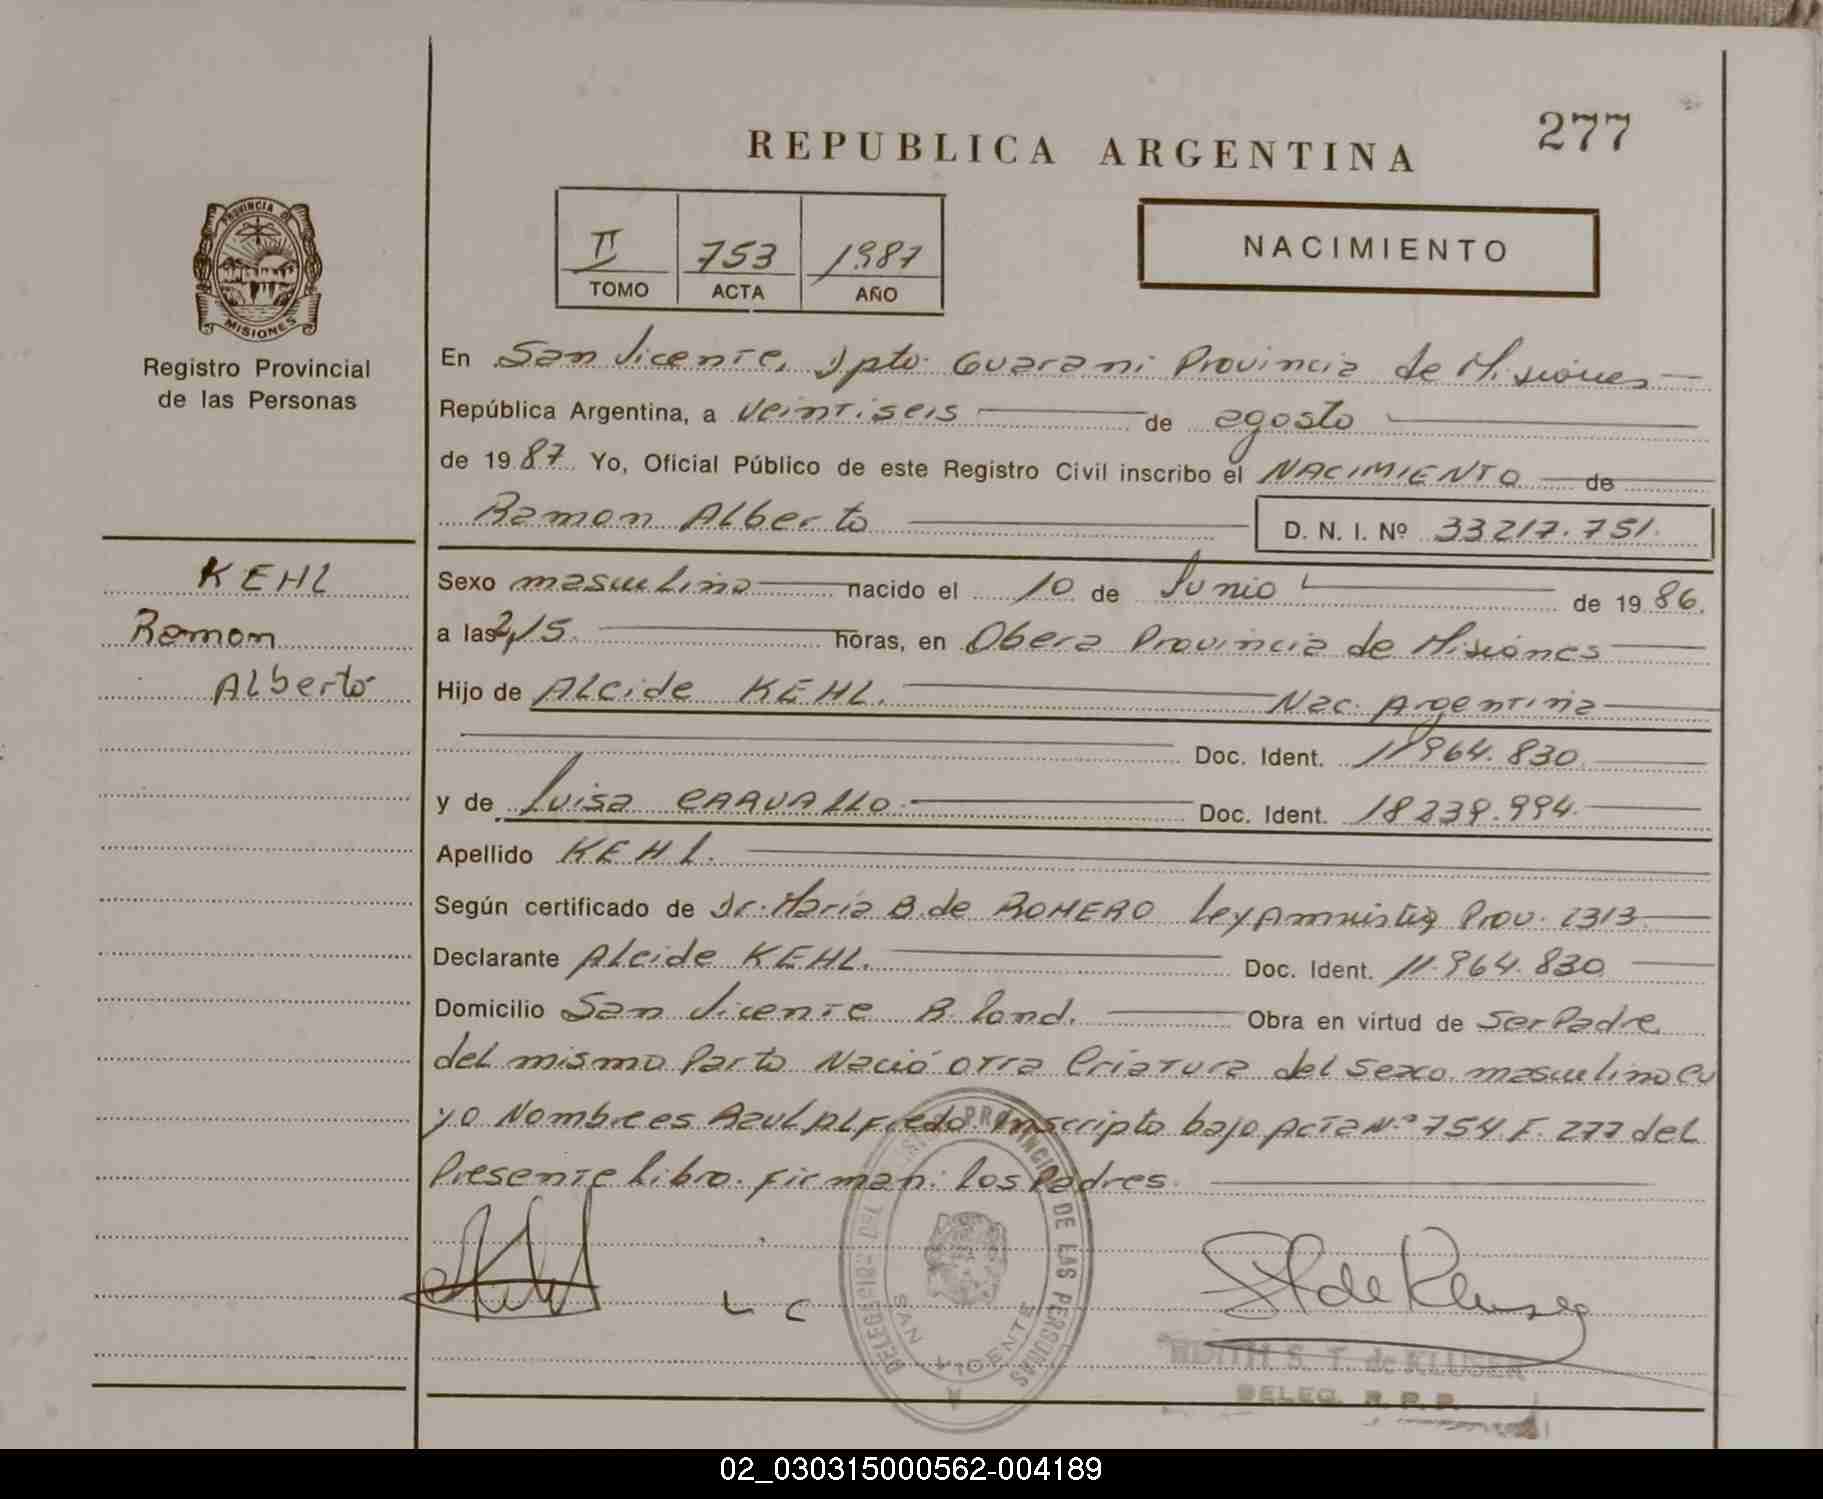 277
REPUBLICA ARGENTINA
PROVINCIA DE
MISIONES
Registro Provincial
de las Personas
II 753 1987
TOMO ACTA AÑO
NACIMIENTO
En San Vicente, Dpto. Guarani Provincia de Misiones
República Argentina, a veintiseis de agosto
de 1987 Yo, Oficial Público de este Registro Civil inscribo el NACIMIENTO de
Ramon Alberto D. N. I. Nº 33217.751.
KEHL
Ramon
Alberto
Sexo masculino nacido el 10 de Junio de 1986.
a las 2,15. horas, en Obera Provincia de Misiones
Hijo de Alcide KEHL. Nac. Argentina
Doc. Ident. 11964.830
y de Luisa CARVALLO. Doc. Ident. 18239.994.
Apellido KEHL.
Según certificado de Dr. Maria B. de ROMERO Ley Amnistia Prov. 2313
Declarante Alcide KEHL. Doc. Ident. 11.964.830
Domicilio San Vicente B. Lond. Obra en virtud de Ser Padre
del mismo Parto Nació otra Criatura del Sexo masculino cu
yo Nombre es Azul Alfredo Inscripto bajo Acta N.º 754 F. 277 del
Presente Libro. Firman: los Padres.
L C
DE LAS PERSONAS
SAN VICENTE
EDITH S. T. de KLUSER
DELEG. R. P. P.
02_030315000562-004189